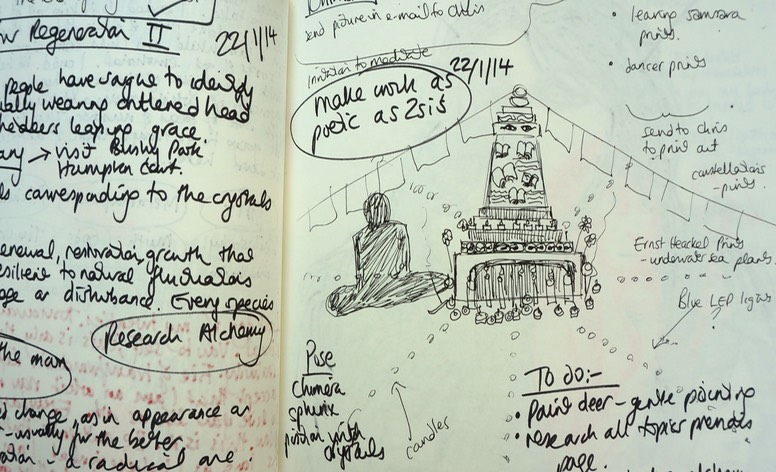 Regeneration II
22/1/14
people have vague to identify
wearing antlered head
leaving grace.
→ visit Bushy Park
Hampton Court.
corresponding to the crystals
renewal, restoration, growth that
resilient to natural fluctuations
or disturbance. Every species
Research Alchemy
the man
change, as in appearance or
- usually for the better
- a radical
send picture in e-mail to Chris
Invitation to meditate
22/1/14
make work as
poetic as 2sis
• leaving samsara
prints.
• dancer prints
send to chris
to print out
constellations
- prints.
Ernst Haeckel Prints
- underwater sea plants.
Blue LED lights
Pose
chimera
sphinx
with
crystals
candles
To do:-
• Paint deer - gentle pointing
• research all topics
page.